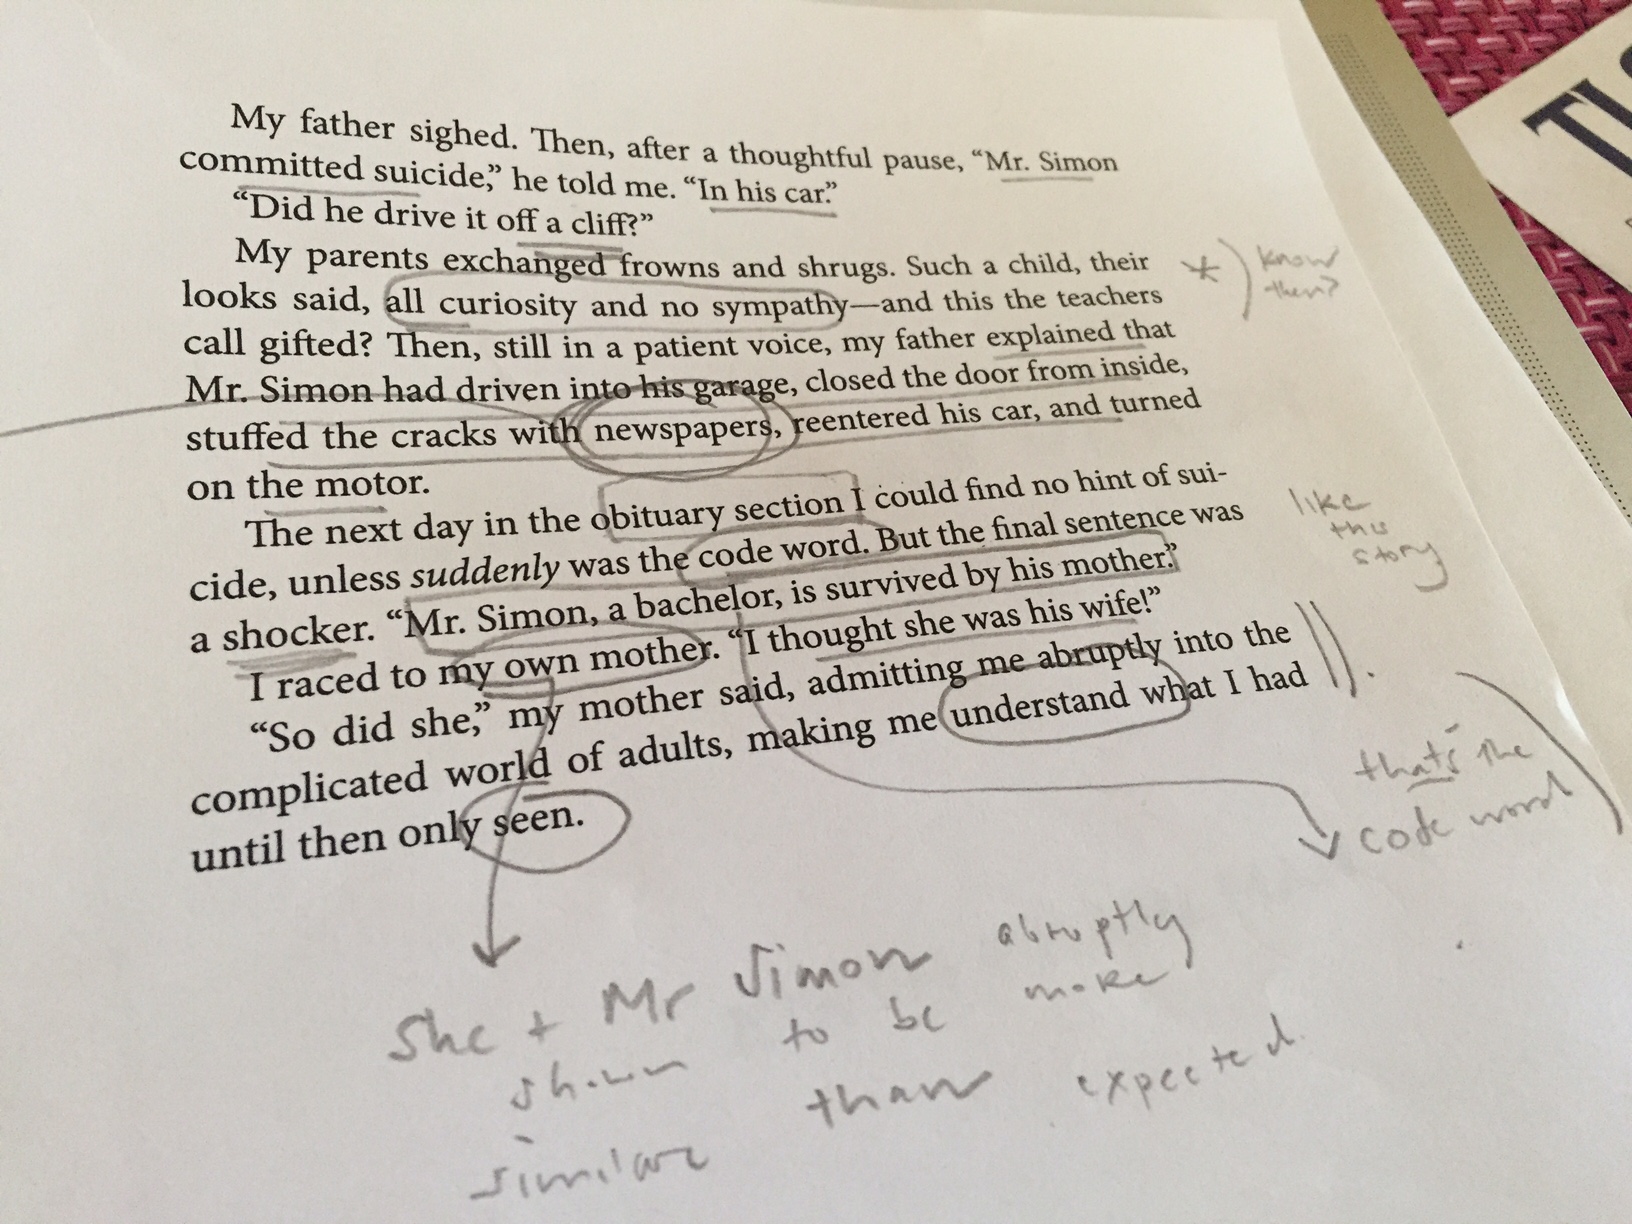 My father sighed. Then, after a thoughtful pause, “Mr. Simon
committed suicide,” he told me. “In his car.”
“Did he drive it off a cliff?”
My parents exchanged frowns and shrugs. Such a child, their
looks said, all curiosity and no sympathy—and this the teachers
call gifted? Then, still in a patient voice, my father explained that
Mr. Simon had driven into his garage, closed the door from inside,
stuffed the cracks with newspapers, reentered his car, and turned
on the motor.
The next day in the obituary section I could find no hint of sui-
cide, unless suddenly was the code word. But the final sentence was
a shocker. “Mr. Simon, a bachelor, is survived by his mother.”
I raced to my own mother. “I thought she was his wife!”
“So did she,” my mother said, admitting me abruptly into the
complicated world of adults, making me understand what I had
until then only seen.
know
then?
like
this
story
that's the
code word
She + Mr Simon abruptly
shown to be more
similar than expected.